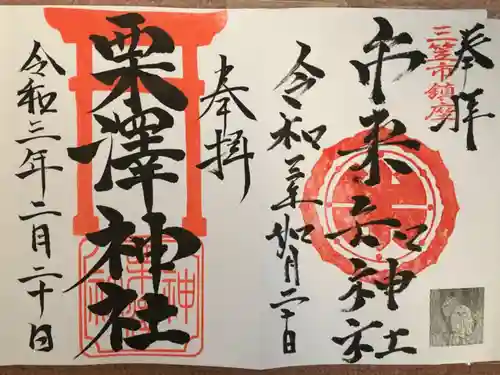 三笠市鎮座
奉拝
市来知神社
令和三年如月二十日
奉拝
栗澤神社
令和三年二月二十日